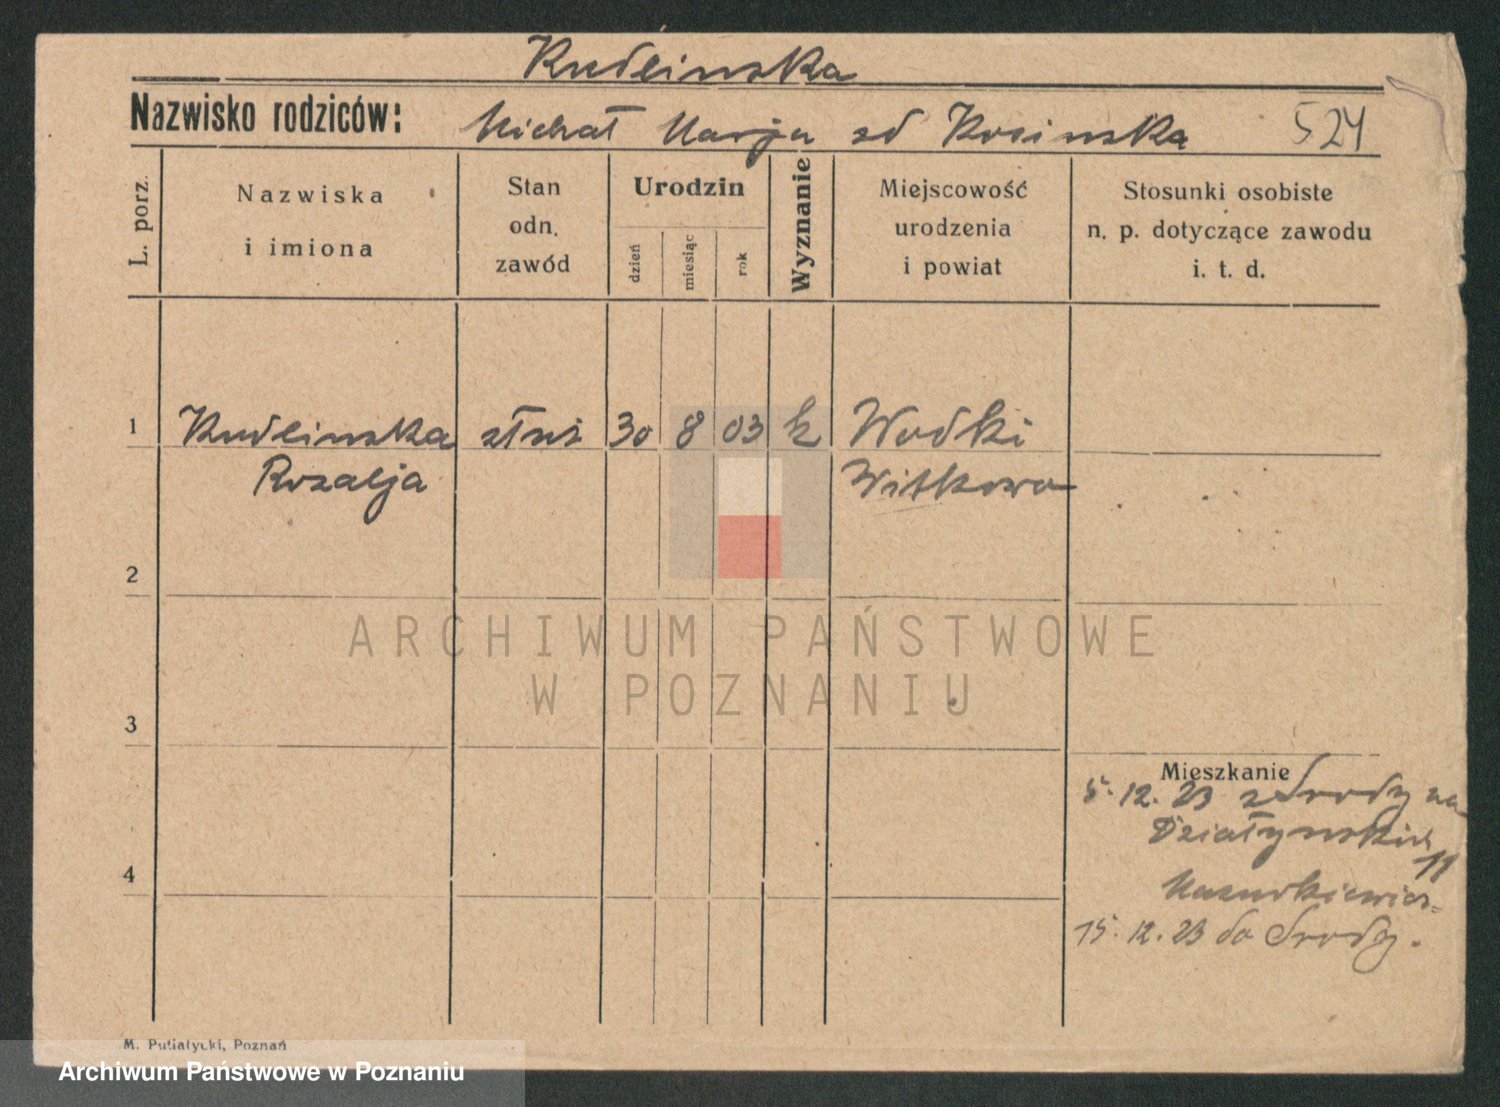 Kudlinska
Nazwisko rodziców: Michał Marja zd Kosinska 524
L. porz.
Nazwiska
i imiona
Stan
odn.
zawód
Urodzin
dzień
miesiąc
rok
Wyznanie
Miejscowość
urodzenia
i powiat
Stosunki osobiste
n. p. dotyczące zawodu
i. t. d.
1 Kudlinska służ 30 8 03 k Wodki
Rozalja Witkowo
2
ARCHIWUM PAŃSTWOWE
W POZNANIU
3
Mieszkanie
5.12.23 z Srody na
Działynskich
11
4
Mazurkiewicz
15.12.23 do Srody.
M. Putiatycki, Poznań
Archiwum Państwowe w Poznaniu